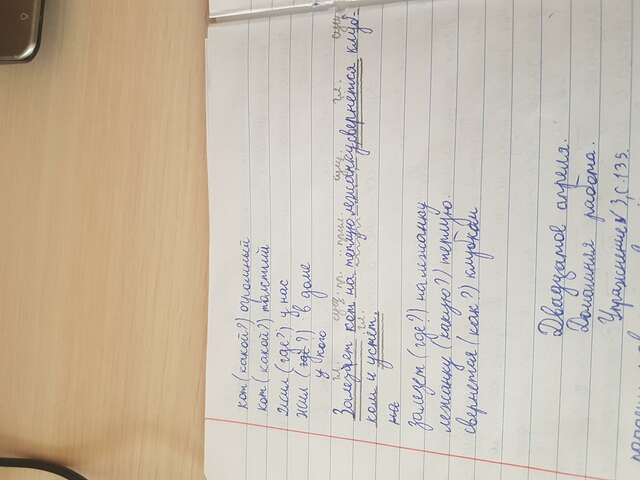 кот (какой?) огромный
кот (какой?) толстый
Жил (где?) у нас
Жил (где?) в доме
у кого
гл. сущ. пр. прил. сущ. гл. сущ.
Залезает кот на теплую лежанку, свернется клуб-
гл.
ком и уснёт.
на
залезет (где?) на лежанку
лежанку (какую?) теплую.
свернется (как?) клубком
Двадцатое апреля.
Домашняя работа.
Упражнение 3, С. 135